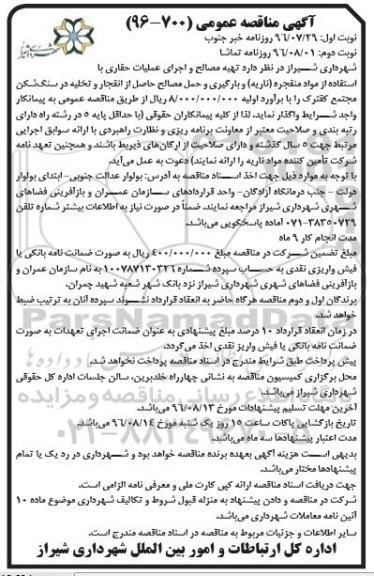 آگهی مناقصه عمومی (۷۰۰-۹۶)
نوبت اول: ۹۶/۰۷/۲۹ روزنامه خبر جنوب
نوبت دوم: ۹۶/۰۸/۰۱ روزنامه تماشا
شهرداری شیراز در نظر دارد تهیه مصالح و اجرای عملیات حفاری با
استفاده از مواد منفجره (ناریه) و بارگیری و حمل مصالح حاصل از انفجار و تخلیه در سنگ‌شکن
مجتمع کفترک را با برآورد اولیه ۸/۰۰۰/۰۰۰/۰۰۰ ریال از طریق مناقصه عمومی به پیمانکار
واجد شرایط واگذار نماید. لذا از کلیه پیمانکاران حقوقی (با حداقل پایه ۵ در رشته راه دارای
رتبه بندی و صلاحیت معتبر از معاونت برنامه ریزی و نظارت راهبردی با ارائه سوابق اجرایی
مرتبط جهت ۵ سال گذشته و دارای صلاحیت از ارگان‌های ذیربط باشند و همچنین تعهد نامه
شرکت تأمین کننده مواد ناریه را ارائه نمایند) دعوت به عمل می‌آید.
با توجه به موارد ذیل جهت اخذ اسناد مناقصه به آدرس: بولوار عدالت جنوبی- ابتدای بولوار
دولت - جنب درمانگاه آزادگان- واحد قراردادهای سازمان عمران و بازآفرینی فضاهای
شهری شهرداری شیراز مراجعه نمایند. ضمناً در صورت نیاز به اطلاعات بیشتر شماره تلفن
۳۸۳۵۰۷۲۹-۰۷۱ آماده پاسخگویی می‌باشد.
مدت انجام کار ۹ ماه
مبلغ تضمین شرکت در مناقصه مبلغ ۴۰۰/۰۰۰/۰۰۰ ریال به صورت ضمانت نامه بانکی یا
فیش واریزی نقدی به حساب سپرده شماره ۱۰۰۷۸۷۱۳۰۳۲۶ به نام سازمان عمران و
بازآفرینی فضاهای شهری شهرداری شیراز نزد بانک شهر شعبه شهید چمران.
برندگان اول و دوم مناقصه هرگاه حاضر به انعقاد قرارداد نشوند سپرده آنان به ترتیب ضبط
خواهد شد.
در زمان انعقاد قرارداد ۱۰ درصد مبلغ پیشنهادی به عنوان ضمانت اجرای تعهدات به صورت
ضمانت نامه بانکی یا فیش واریز نقدی اخذ می‌گردد.
پیش پرداخت طبق شرایط مندرج در اسناد مناقصه پرداخت نخواهد شد.
محل برگزاری کمیسیون مناقصه به نشانی چهارراه خلدبرین، سالن جلسات اداره کل حقوقی
شهرداری شیراز می‌باشد.
آخرین مهلت تسلیم پیشنهادات مورخ ۹۶/۰۸/۱۳ می‌باشد.
تاریخ بازگشایی پاکات ساعت ۱۵ روز یک شنبه مورخ ۹۶/۰۸/۱۴ می‌باشد.
مدت اعتبار پیشنهادها سه ماه می‌باشد.
بدیهی است هزینه آگهی بعهده برنده مناقصه خواهد بود و شهرداری در رد یک یا تمام
پیشنهادها مختار می‌باشد.
جهت دریافت اسناد مناقصه ارائه کپی کارت ملی و معرفی نامه الزامی است.
شرکت در مناقصه و دادن پیشنهاد به منزله قبول شروط و تکالیف شهرداری موضوع ماده ۱۰
آئین نامه معاملات شهرداری می‌باشد.
سایر اطلاعات و جزئیات مربوط به مناقصه در اسناد مناقصه مندرج است.
اداره کل ارتباطات و امور بین الملل شهرداری شیراز